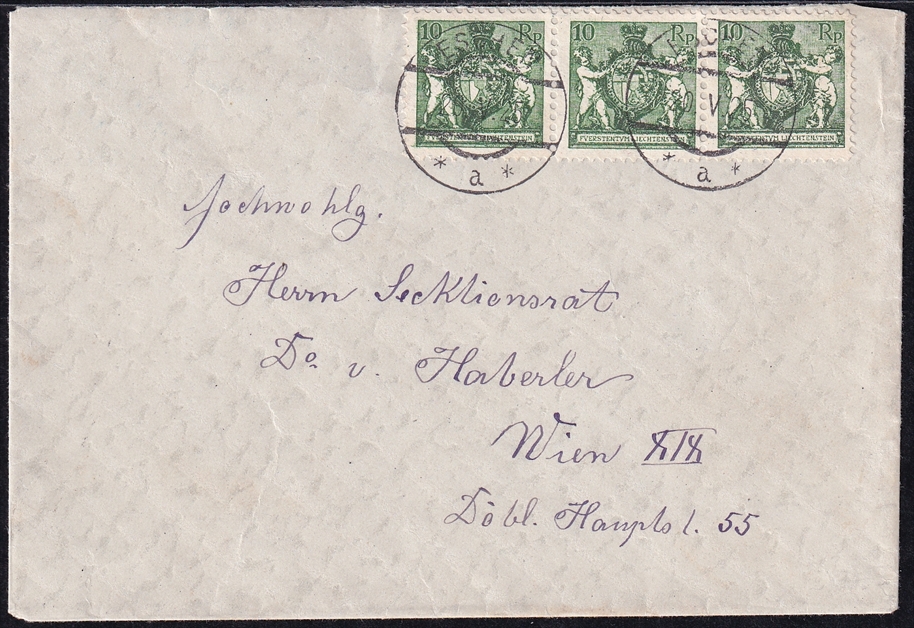 10 Rp 10 Rp 10 Rp
FVERSTENTVM LIECHTENSTEIN FVERSTENTVM LIECHTENSTEIN FVERSTENTVM LIECHTENSTEIN
* a * * a *
Hochwohlg.
Herrn Secktionsrat
Dr. v. Haberler
Wien XIX
Döbl. Hauptst. 55